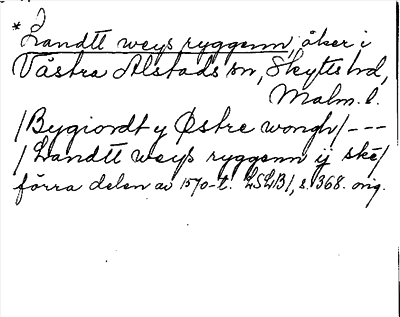 * Landtt weys ryggenn, åker i
Västra Alstads sn, Skytts hd,
Malm. l.
/Bygiordt y Østre wongh/---
/Landtt weys ryggenn ij skē/
förra delen av 1570-t. LSLB1, s. 368. orig.